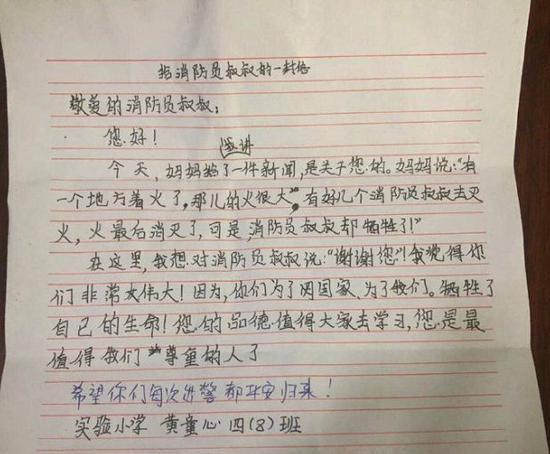 给消防员叔叔的一封信
敬爱的消防员叔叔:
您好!
今天,妈妈给我讲了一件新闻,是关于您的。妈妈说:“有
一个地方着火了,那儿的火很大”,有好几个消防员叔叔去灭
火,火最后消灭了,可是,消防员叔叔却牺牲了!”
在这里,我想对消防员叔叔说:“谢谢您”!我觉得你
们非常伟大!因为,你们为了国家、为了我们。牺牲了
自己的生命!您的品德值得大家去学习,您是最
值得我们尊重的人了
希望你们每次出警都平安归来!
实验小学 黄童心 四(8)班